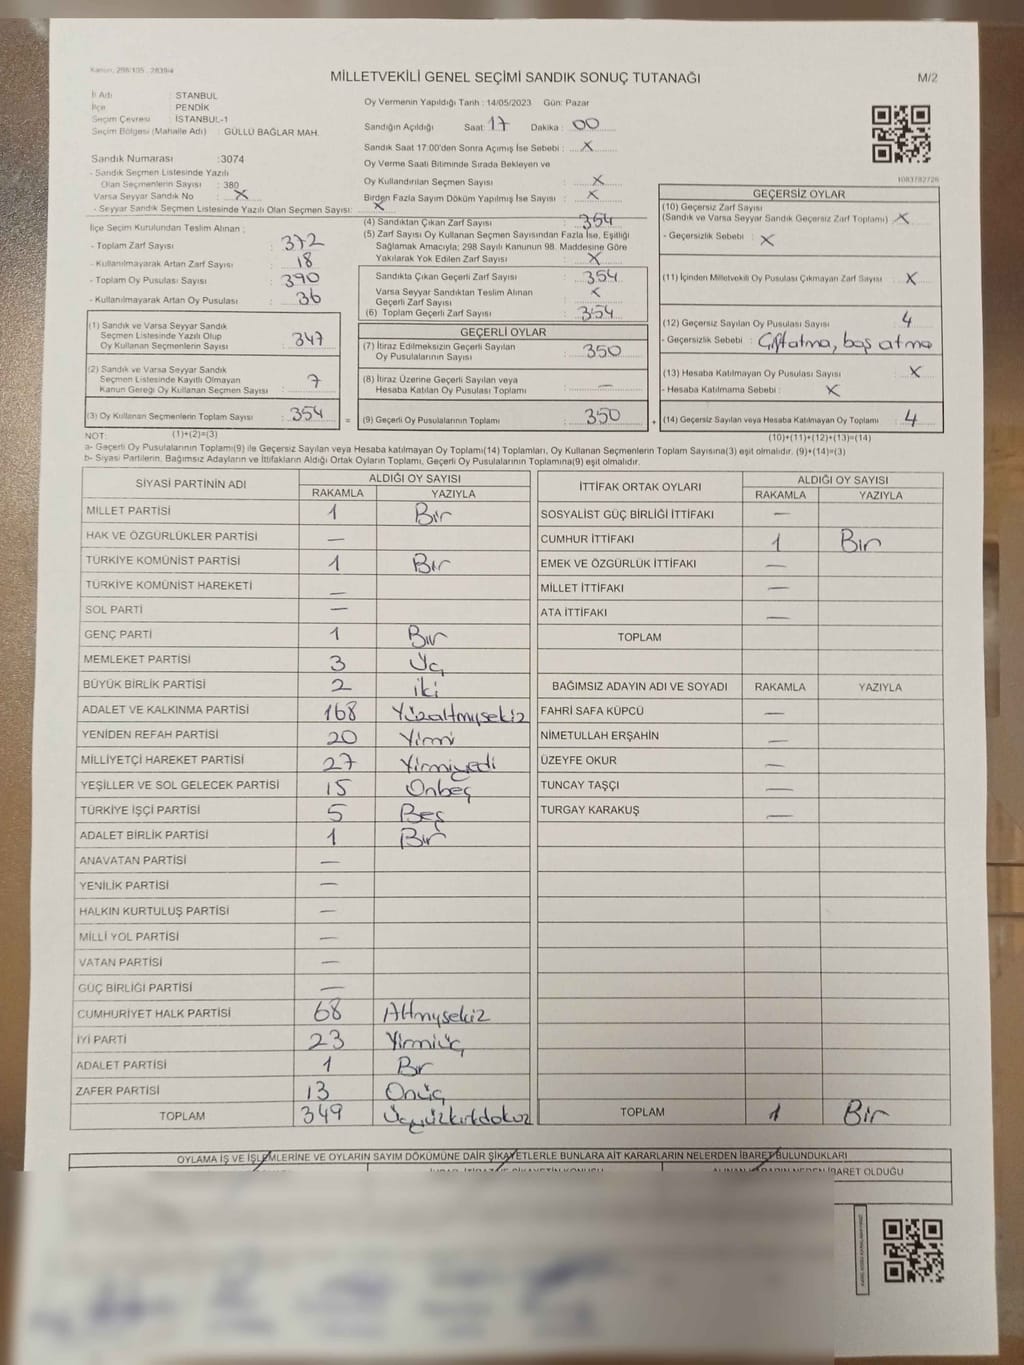 Kanun, 298/105, 2839/4
MİLLETVEKİLİ GENEL SEÇİMİ SANDIK SONUÇ TUTANAĞI
M/2
İl Adı : STANBUL
İlçe : PENDİK
Seçim Çevresi : İSTANBUL-1
Seçim Bölgesi (Mahalle Adı) : GÜLLÜ BAĞLAR MAH.
Oy Vermenin Yapıldığı Tarih : 14/05/2023 Gün: Pazar
Sandığın Açıldığı Saat: 17 Dakika : 00
Sandık Saat 17:00'den Sonra Açımış İse Sebebi : X
Oy Verme Saati Bitiminde Sırada Bekleyen ve
Oy Kullandırılan Seçmen Sayısı : X
Birden Fazla Sayım Döküm Yapılmış İse Sayısı : X
1083782726
Sandık Numarası :3074
- Sandık Seçmen Listesinde Yazılı
Olan Seçmenlerin Sayısı : 380
Varsa Seyyar Sandık No : X
- Seyyar Sandık Seçmen Listesinde Yazılı Olan Seçmen Sayısı: X
İlçe Seçim Kurulundan Teslim Alınan ;
- Toplam Zarf Sayısı : 372
- Kullanılmayarak Artan Zarf Sayısı : 18
- Toplam Oy Pusulası : 390
- Kullanılmayarak Artan Oy Pusulası : 36
(1) Sandık ve Varsa Seyyar Sandık
Seçmen Listesinde Yazılı Olup
Oy Kullanan Seçmenlerin Sayısı : 347
(2) Sandık ve Varsa Seyyar Sandık
Seçmen Listesinde Kayıtlı Olmayan
Kanun Gereği Oy Kullanan Seçmen Sayısı : 7
(3) Oy Kullanan Seçmenlerin Toplam Sayısı : 354 =
(4) Sandıktan Çıkan Zarf Sayısı : 354
(5) Zarf Sayısı Oy Kullanan Seçmen Sayısından Fazla İse, Eşitliği
Sağlamak Amacıyla; 298 Sayılı Kanunun 98. Maddesine Göre
Yakılarak Yok Edilen Zarf Sayısı : X
Sandıkta Çıkan Geçerli Zarf Sayısı : 354
Varsa Seyyar Sandıktan Teslim Alınan
Geçerli Zarf Sayısı : X
(6) Toplam Geçerli Zarf Sayısı : 354
GEÇERLİ OYLAR
(7) İtiraz Edilmeksizin Geçerli Sayılan
Oy Pusulalarının Sayısı : 350
(8) İtiraz Üzerine Geçerli Sayılan veya
Hesaba Katılan Oy Pusulalarını Toplamı : —
(9) Geçerli Oy Pusulalarının Toplamı : 350 +
GEÇERSİZ OYLAR
(10) Geçersiz Zarf Sayısı
(Sandık ve Varsa Seyyar Sandık Geçersiz Zarf Toplamı) : X
- Geçersizlik Sebebi : X
(11) İçinden Milletvekili Oy Pusulası Çıkmayan Zarf Sayısı : X
(12) Geçersiz Sayılan Oy Pusulası Sayısı : 4
- Geçersizlik Sebebi : Çift atma, boş atma
(13) Hesaba Katılmayan Oy Pusulası Sayısı : X
- Hesaba Katılmama Sebebi : X
(14) Geçersiz Sayılan veya Hesaba Katılmayan Oy Toplamı : 4
NOT: (1)+(2)=(3)
(10)+(11)+(12)+(13)=(14)
a- Geçerli Oy Pusulalarının Toplamı(9) ile Geçersiz Sayılan veya Hesaba katılmayan Oy Toplam(14) Toplamları, Oy Kullanan Seçmenlerin Toplam Sayısına(3) eşit olmalıdır. (9)+(14)=(3)
b- Siyasi Partilerin, Bağımsız Adayların ve İttifakların Aldığı Ortak Oyların Toplamı, Geçerli Oy Pusulalarının Toplamına(9) eşit olmalıdır.
SİYASİ PARTİNİN ADI ALDIĞI OY SAYISI
RAKAMLA YAZIYLA
MİLLET PARTİSİ 1 Bir
HAK VE ÖZGÜRLÜKLER PARTİSİ —
TÜRKİYE KOMÜNİST PARTİSİ 1 Bir
TÜRKİYE KOMÜNİST HAREKETİ —
SOL PARTİ —
GENÇ PARTİ 1 Bir
MEMLEKET PARTİSİ 3 Üç
BÜYÜK BİRLİK PARTİSİ 2 iki
ADALET VE KALKINMA PARTİSİ 168 Yüzaltmışsekiz
YENİDEN REFAH PARTİSİ 20 Yirmi
MİLLİYETÇİ HAREKET PARTİSİ 27 Yirmiyedi
YEŞİLLER VE SOL GELECEK PARTİSİ 15 Onbeş
TÜRKİYE İŞÇİ PARTİSİ 5 Beş
ADALET BİRLİK PARTİSİ 1 Bir
ANAVATAN PARTİSİ —
YENİLİK PARTİSİ —
HALKIN KURTULUŞ PARTİSİ —
MİLLİ YOL PARTİSİ —
VATAN PARTİSİ —
GÜÇ BİRLİĞİ PARTİSİ —
CUMHURİYET HALK PARTİSİ 68 Altmışsekiz
İYİ PARTİ 23 Yirmiüç
ADALET PARTİSİ 1 Bir
ZAFER PARTİSİ 13 Onüç
TOPLAM 349 Üçyüzkırkdokuz
İTTİFAK ORTAK OYLARI ALDIĞI OY SAYISI
RAKAMLA YAZIYLA
SOSYALİST GÜÇ BİRLİĞİ İTTİFAKI —
CUMHUR İTTİFAKI 1 Bir
EMEK VE ÖZGÜRLÜK İTTİFAKI —
MİLLET İTTİFAKI —
ATA İTTİFAKI —
TOPLAM
BAĞIMSIZ ADAYIN ADI VE SOYADI RAKAMLA YAZIYLA
FAHRİ SAFA KÜPCÜ —
NİMETULLAH ERŞAHİN —
ÜZEYFE OKUR —
TUNCAY TAŞÇI —
TURGAY KARAKUŞ —
TOPLAM 1 Bir
OYLAMA İŞ VE İŞLEMLERİNE VE OYLARIN SAYIM DÖKÜMÜNE DAİR ŞİKAYETLERLE BUNLARA AİT KARARLARIN NELERDEN İBARET BULUNDUKLARI
NEDEN İBARET OLDUĞU